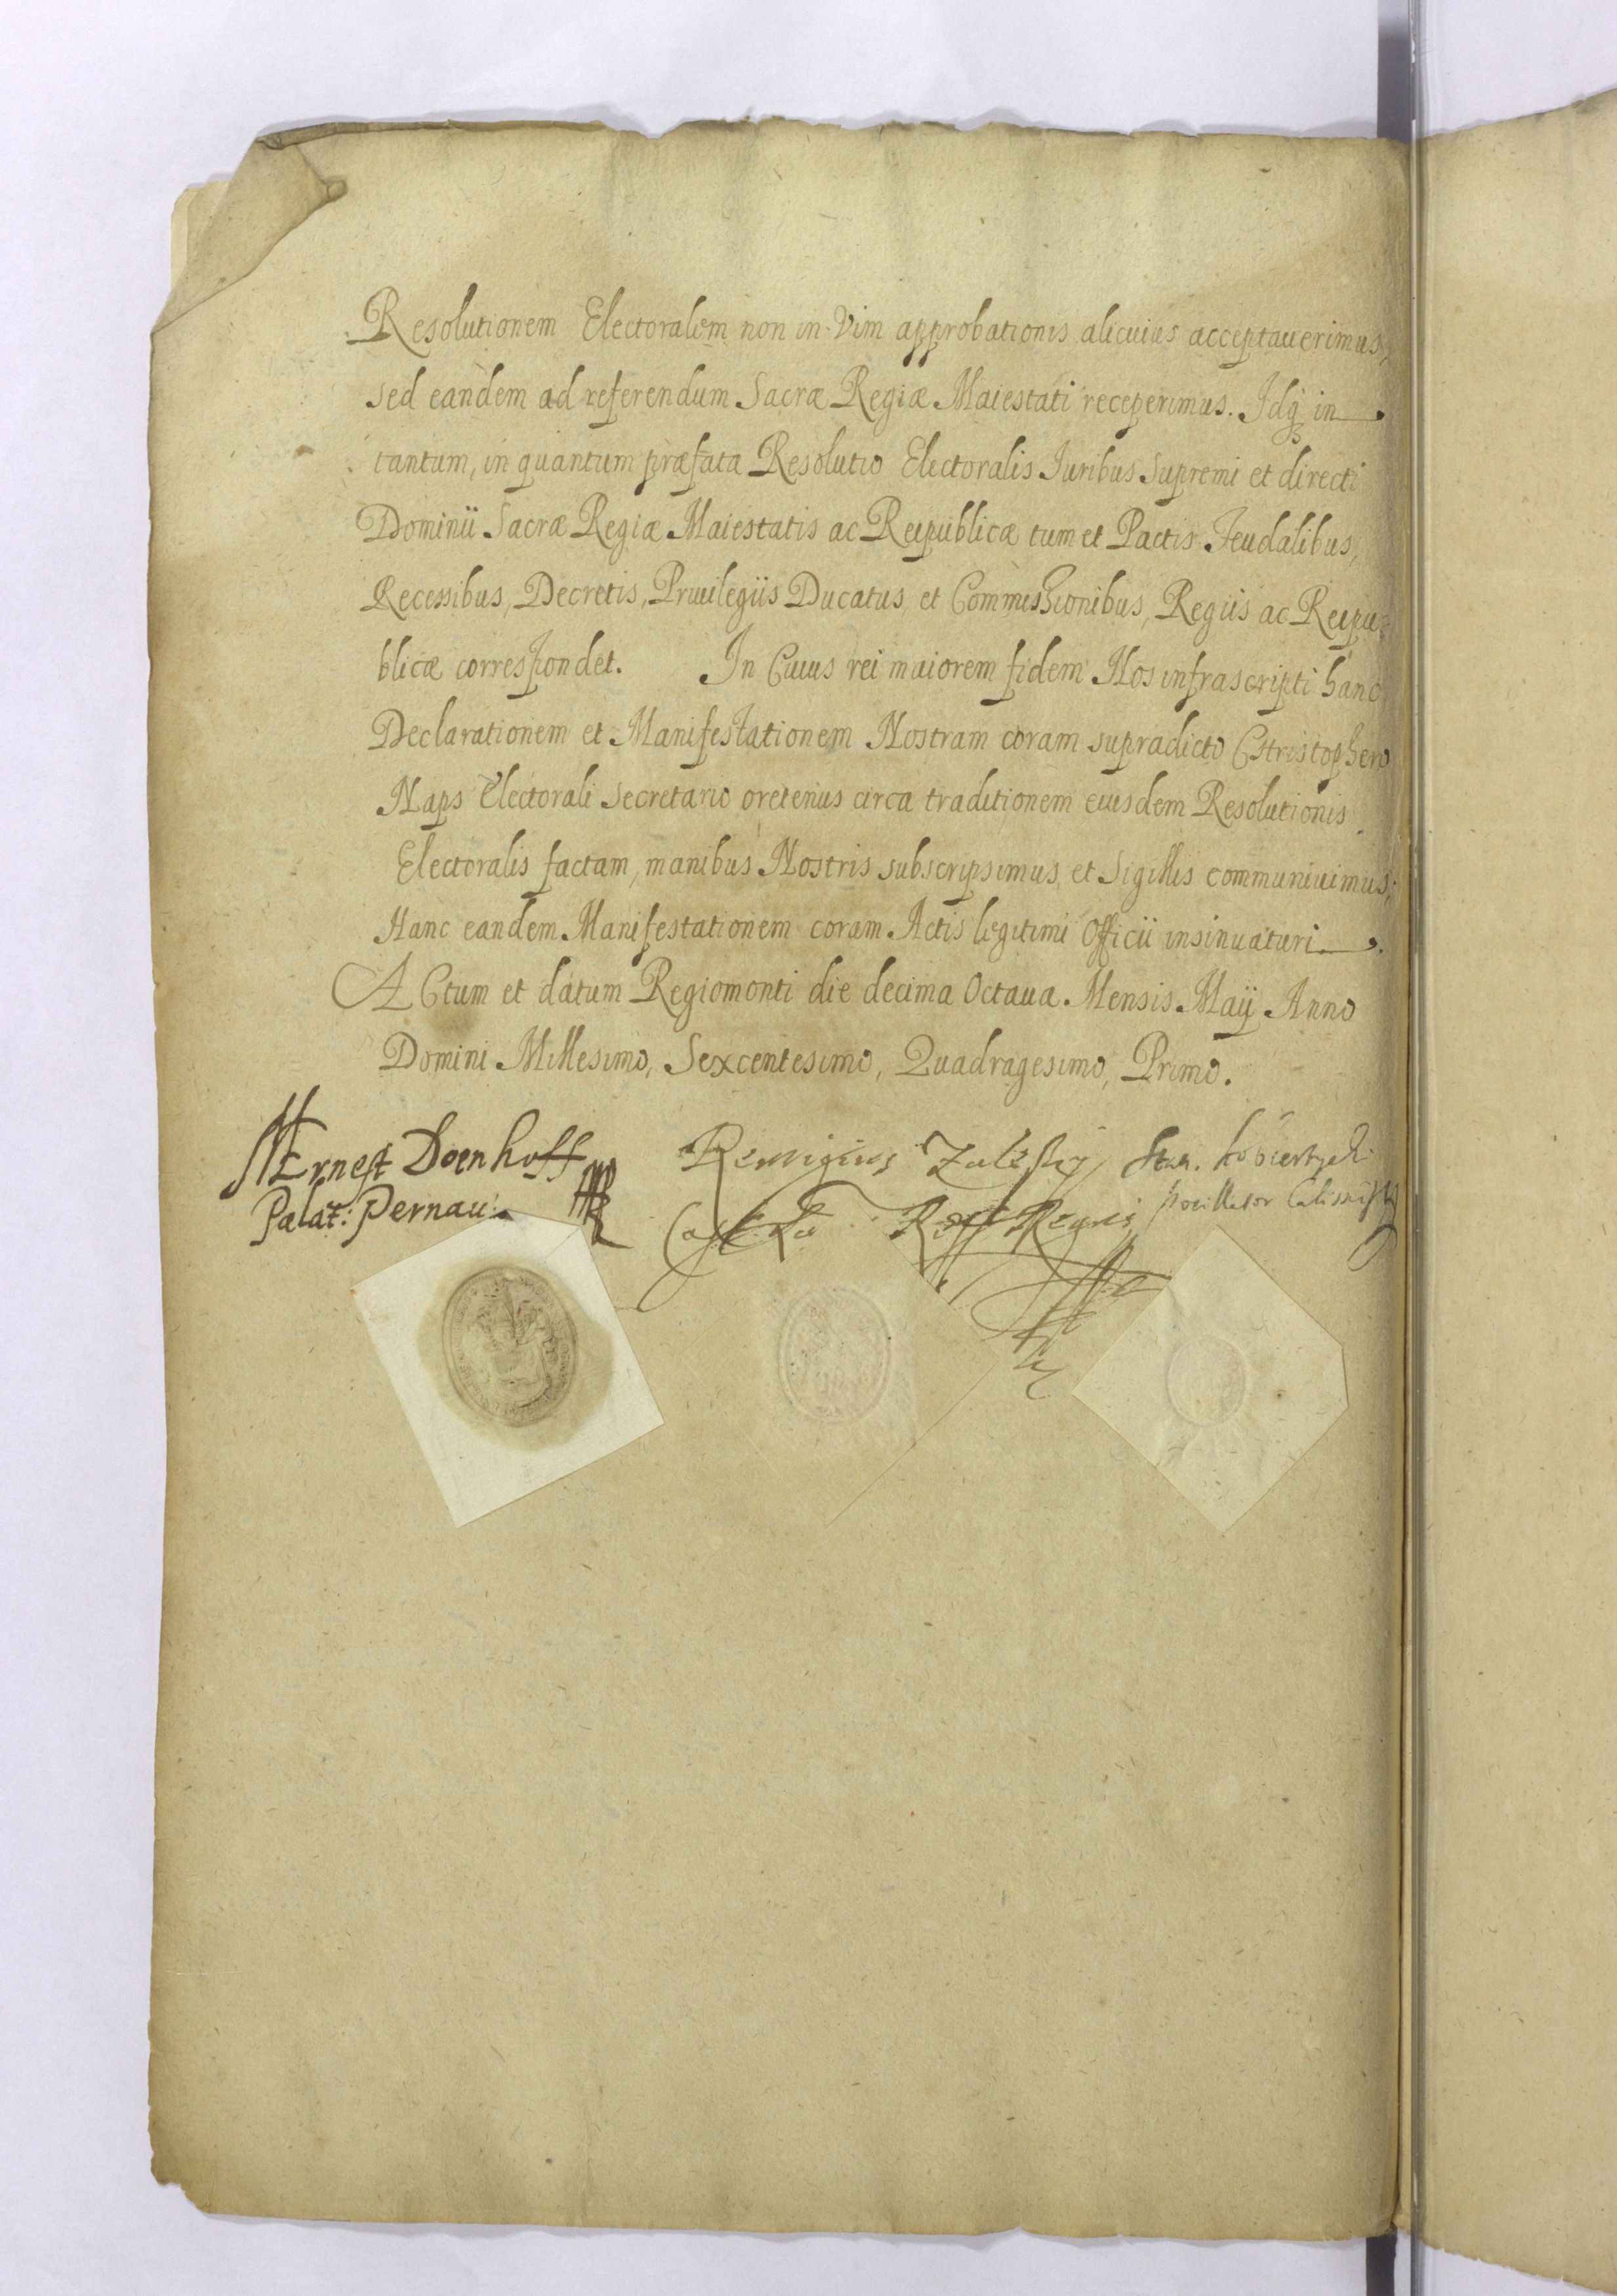 Resolutionem Electoralem non in Vim approbationis alicuius acceptauerimus,
sed eandem ad referendum Sacræ Regiæ Maiestati receperimus. Idq̃ in
tantum, in quantum præfata Resolutio Electoralis Iuribus Supremi et directi
Dominii Sacræ Regiæ Maiestatis ac Reipublicæ tum et Pactis Feudalibus,
Recessibus, Decretis, Priuilegiis Ducatus, et Commissionibus, Regiis ac Reipu=
blicæ correspondet. In Cuius rei maiorem fidem Nos infrascripti hanc
Declarationem et Manifestationem Nostram coram supradicto Christophero
Naps Electorali Secretario oretenus circa traditionem eiusdem Resolutionis
Electoralis factam, manibus Nostris subscripsimus et Sigillis communiuimus;
Hanc eandem Manifestationem coram Actis legitimi Officii insinuaturi.
ACtum et datum Regiomonti die decima Octaua Mensis Maÿ Anno
Domini Millesimo, Sexcentesimo, Quadragesimo, Primo.
Ernest Doenhoff Remigius Zaleskÿ Stan. Kobiertzcki
Palat: Pernau: Regni pocillator Calissiesis